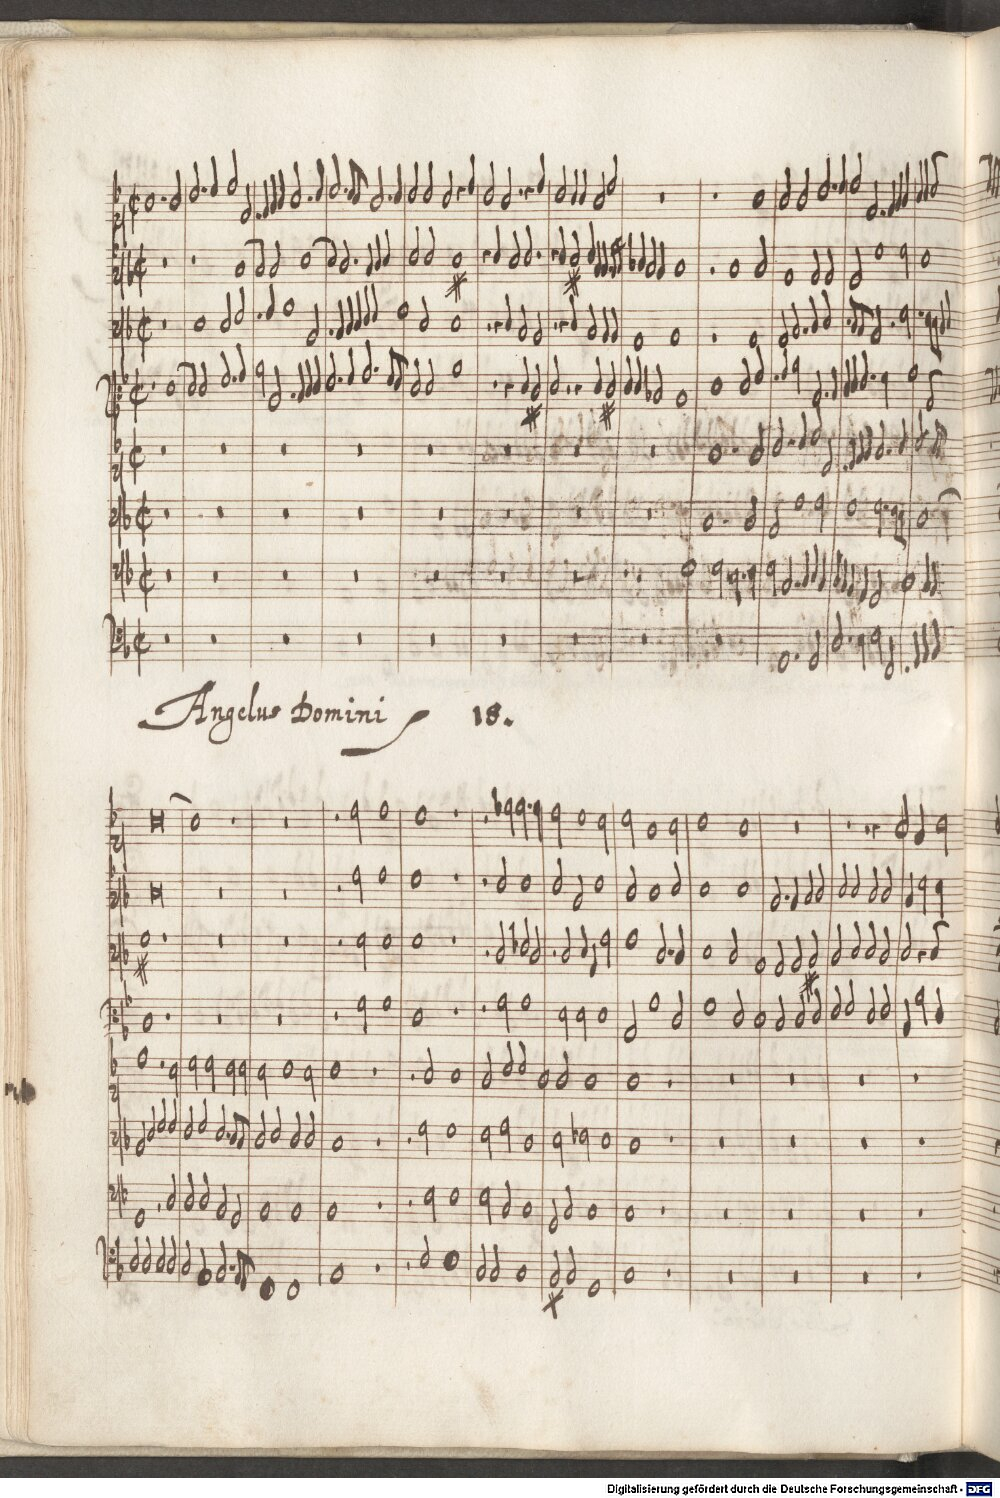 Angelus Domini 18.
Digitalisierung gefördert durch die Deutsche Forschungsgemeinschaft - DFG